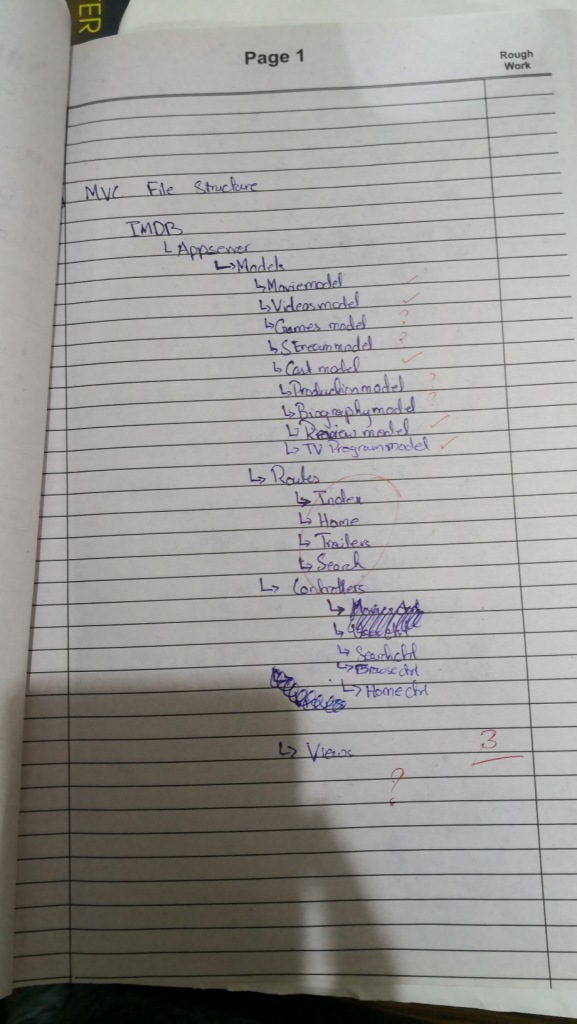 TER
Page 1
Rough
Work
MVC File Structure
IMDB
↳ Appserver
↳ Models
↳ Moviemodel ✓
↳ Videosmodel ✓
↳ Games model ?
↳ Streammodel ?
↳ Cast model ✓
↳ Productionmodel ?
↳ Biographymodel ?
↳ Review model ✓
↳ TV Programmodel ✓
↳ Routes
↳ Index
↳ Home
↳ Trailers
↳ Search
↳ Controllers
↳ Searchctrl
↳ Browsectrl
↳ Homectrl
↳ Views
3
?